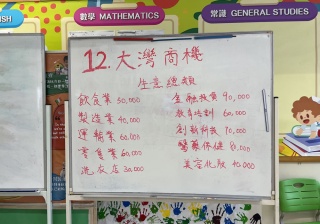 SH
數學 MATHEMATICS
常識 GENERAL STUDIES
12.大灣商機
生意總類
飲食業 50,000
製造業 40,000
運輸業 60,000
零售業 60,000
洗衣店 30,000
金融投資 90,000
教育培訓 60,000
創新科技 70,000
醫藥保健 80,000
美容化妝 40,000